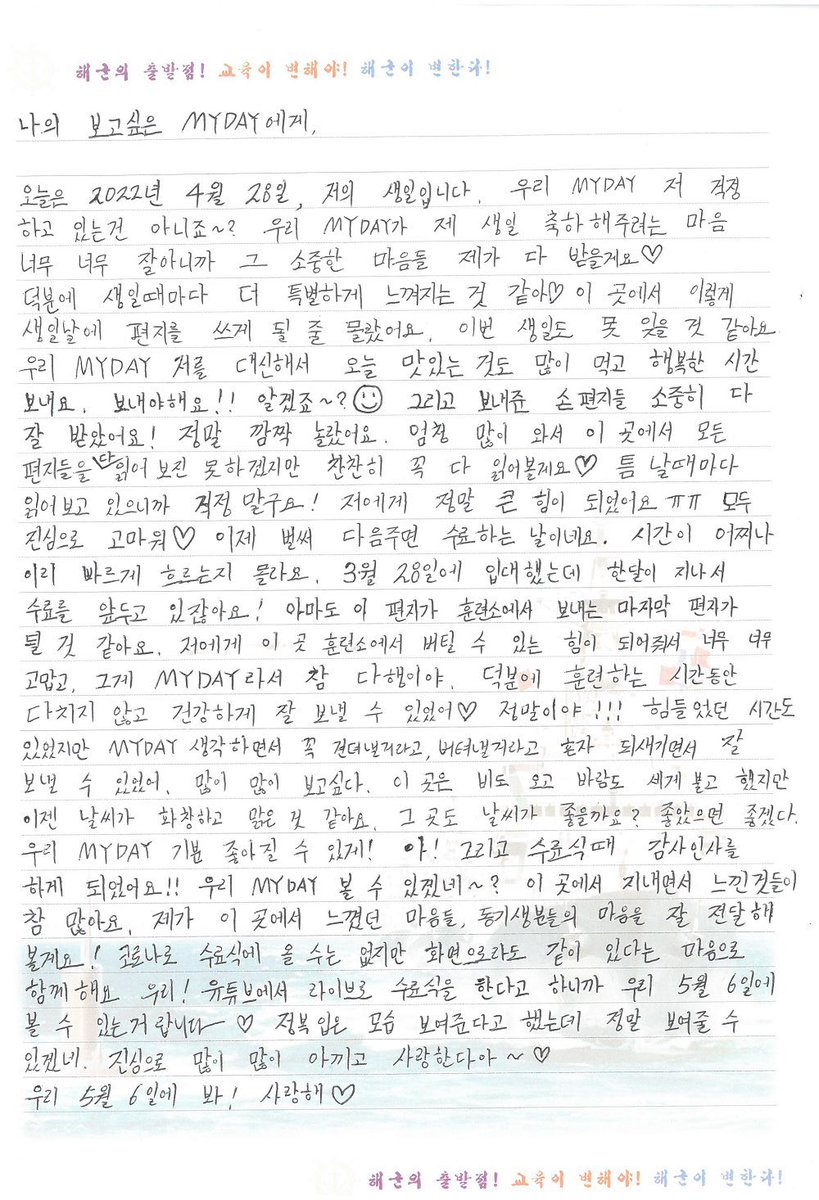 해군의 출발점! 교육이 변해야! 해군이 변한다!
나의 보고싶은 MYDAY에게,
오늘은 2022년 4월 28일, 저의 생일입니다. 우리 MYDAY 저 걱정
하고 있는건 아니죠~? 우리 MYDAY가 제 생일 축하해주려는 마음
너무 너무 잘아니까 그 소중한 마음들 제가 다 받을게요♡
덕분에 생일때마다 더 특별하게 느껴지는 것 같아♡ 이 곳에서 이렇게
생일날에 편지를 쓰게 될 줄 몰랐어요. 이번 생일도 못 잊을 것 같아요
우리 MYDAY 저를 대신해서 오늘 맛있는 것도 많이 먹고 행복한 시간
보내요. 보내야해요!! 알겠죠~?☺ 그리고 보내준 손편지들 소중히 다
잘 받았어요! 정말 깜짝 놀랐어요. 엄청 많이 와서 이 곳에서 모든
편지들을 다 읽어 보진 못하겠지만 찬찬히 꼭 다 읽어볼게요♡ 틈 날때마다
읽어보고 있으니까 걱정 말구요! 저에게 정말 큰 힘이 되었어요 ㅠㅠ 모두
진심으로 고마워♡ 이제 벌써 다음주면 수료하는 날이네요. 시간이 어찌나
이리 빠르게 흐르는지 몰라요. 3월 28일에 입대했는데 한달이 지나서
수료를 앞두고 있잖아요! 아마도 이 편지가 훈련소에서 보내는 마지막 편지가
될 것 같아요. 저에게 이 곳 훈련소에서 버틸 수 있는 힘이 되어줘서 너무 너무
고맙고, 그게 MYDAY라서 참 다행이야. 덕분에 훈련하는 시간동안
다치지 않고 건강하게 잘 보낼 수 있었어♡ 정말이야!!! 힘들었던 시간도
있었지만 MYDAY 생각하면서 꼭 견뎌낼거라고, 버텨낼거라고 혼자 되새기면서 잘
보낼 수 있었어. 많이 많이 보고싶다. 이 곳은 비도 오고 바람도 세게 불고 했지만
이젠 날씨가 화창하고 맑은 것 같아요. 그 곳도 날씨가 좋을까요? 좋았으면 좋겠다.
우리 MYDAY 기분 좋아질 수 있게! 아! 그리고 수료식때 감사인사를
하게 되었어요!! 우리 MYDAY 볼 수 있겠네~? 이 곳에서 지내면서 느낀것들이
참 많아요. 제가 이 곳에서 느꼈던 마음들, 동기생분들의 마음을 잘 전달해
볼게요! 코로나로 수료식에 올 수는 없지만 화면으로라도 같이 있다는 마음으로
함께 해요 우리! 유튜브에서 라이브로 수료식을 한다고 하니까 우리 5월 6일에
볼 수 있는거랍니다~ ♡ 정복입은 모습 보여준다고 했는데 정말 보여줄 수
있겠네. 진심으로 많이 많이 아끼고 사랑한다아~♡
우리 5월 6일에 봐! 사랑해♡
해군의 출발점! 교육이 변해야! 해군이 변한다!